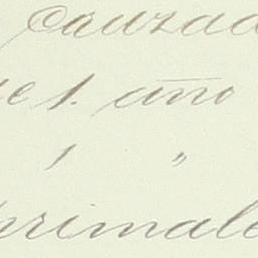 Cauzad
de 1. año
1 "
primale